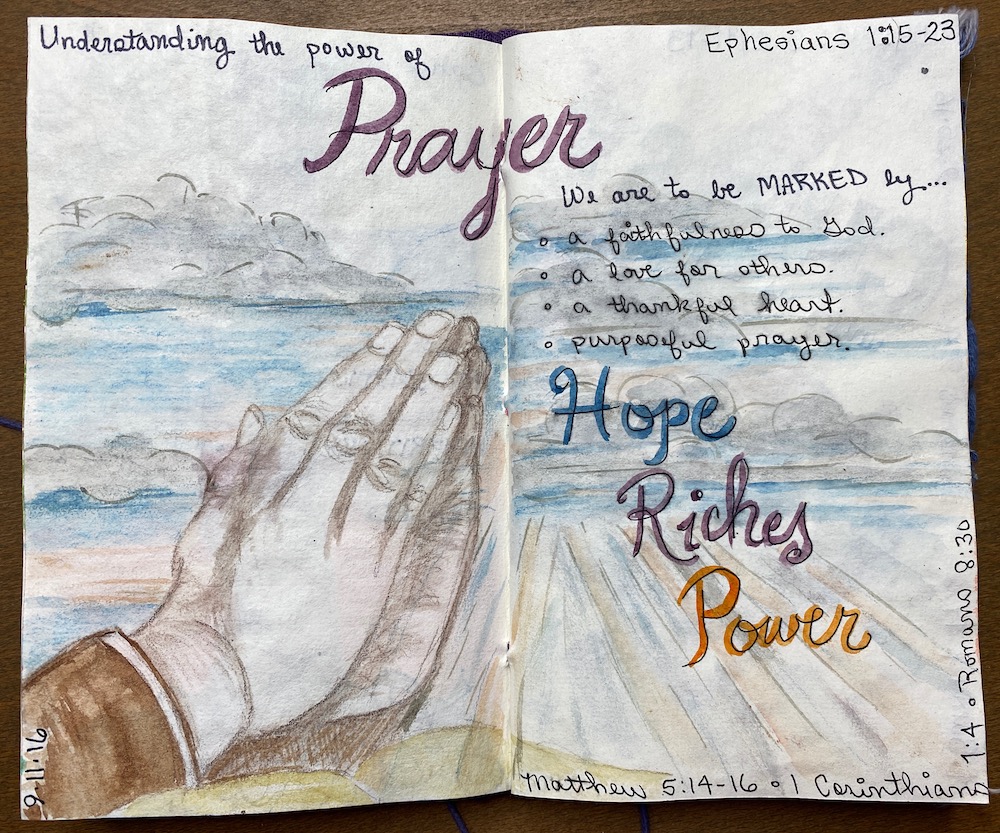 Understanding the power of
Prayer
Ephesians 1:15-23
We are to be MARKED by...
• a faithfulness to God.
• a love for others.
• a thankful heart.
• purposeful prayer.
Hope
Riches
Power
Matthew 5:14-16 • 1 Corinthians
1:4 • Romans 8:30
9-11-16